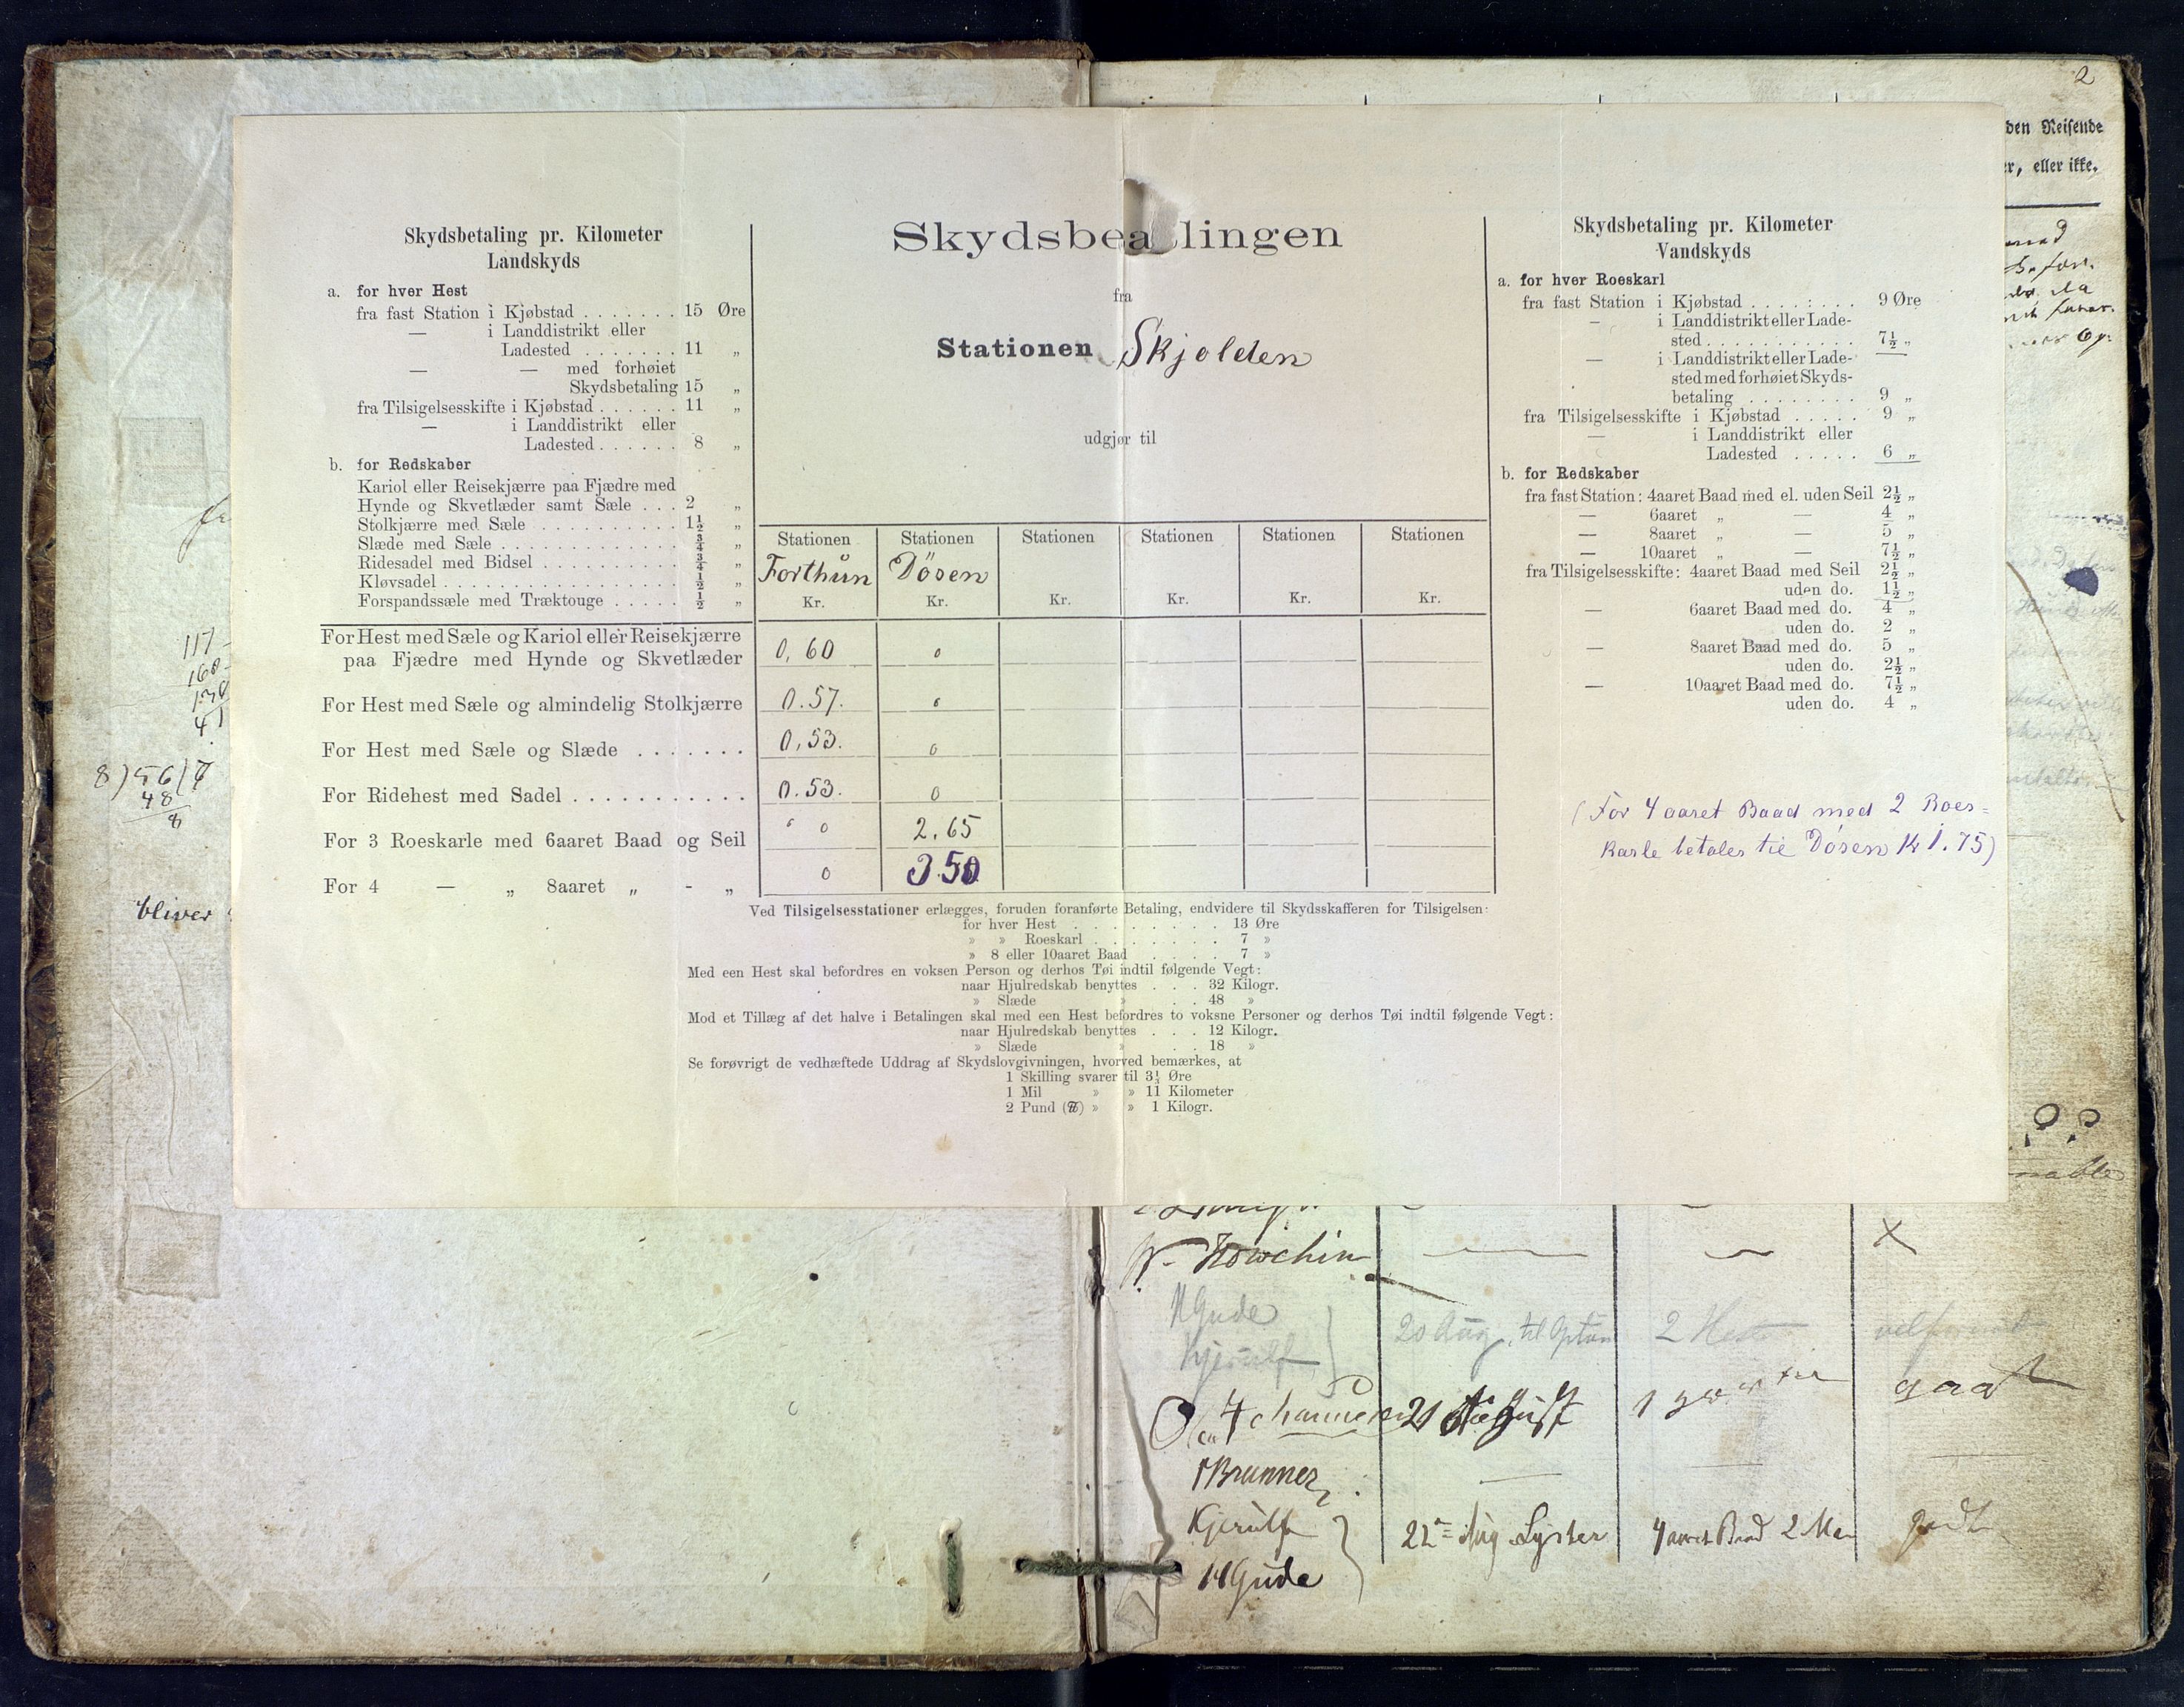 2
den Reisende
er, eller ikke.
Skydsbetaling pr. Kilometer
Landskyds
a. for hver Hest
fra fast Station i Kjøbstad . . . . . . . 15 Øre
— i Landdistrikt eller
Ladested . . . . . . . 11 „
— — med forhøiet
Skydsbetaling 15 „
fra Tilsigelsesskifte i Kjøbstad . . . . . . 11 „
— i Landdistrikt eller
Ladested . . . . . . 8 „
b. for Redskaber
Kariol eller Reisekjærre paa Fjædre med
Hynde og Skvetlæder samt Sæle . . . 2 „
Stolkjærre med Sæle . . . . . . . . . . 1½ „
Slæde med Sæle . . . . . . . . . . . . . ¾ „
Ridesadel med Bidsel . . . . . . . . . . ¾ „
Kløvsadel . . . . . . . . . . . . . . . . . ½ „
Forspandssæle med Træktouge . . . . . ½ „
Skydsbetalingen
fra
Stationen Skjolden
udgjør til
Stationen Stationen Stationen Stationen Stationen Stationen
Forthun Døsen
Kr. Kr. Kr. Kr. Kr. Kr.
For Hest med Sæle og Kariol eller Reisekjærre
paa Fjædre med Hynde og Skvetlæder 0,60 0
For Hest med Sæle og almindelig Stolkjærre 0.57. 0
For Hest med Sæle og Slæde . . . . . . . 0,53. 0
For Ridehest med Sadel . . . . . . . . . . . 0.53. 0
For 3 Roeskarle med 6aaret Baad og Seil 0 2,65
For 4 — „ 8aaret „ - „ 0 3.50
Skydsbetaling pr. Kilometer
Vandskyds
a. for hver Roeskarl
fra fast Station i Kjøbstad . . . . : . . . 9 Øre
— i Landdistrikt eller Lade-
sted . . . . . . . . . . . 7½ „
— i Landdistrikt eller Lade-
sted med forhøiet Skyds-
betaling . . . . . . . . 9 „
fra Tilsigelsesskifte i Kjøbstad . . . . . 9 „
— i Landdistrikt eller
Ladested . . . . . 6 „
b. for Redskaber
fra fast Station: 4aaret Baad med el. uden Seil 2½ „
— 6aaret „ — 4 „
— 8aaret „ — 5 „
— 10aaret „ — 7½ „
fra Tilsigelsesskifte: 4aaret Baad med Seil 2½ „
uden do. 1½ „
— 6aaret Baad med do. 4 „
uden do. 2 „
— 8aaret Baad med do. 5 „
uden do. 2½ „
— 10aaret Baad med do. 7½ „
uden do. 4 „
(For 4 aaret Baad med 2 Roes=
karle betales til Døsen Kr 1.75)
Ved Tilsigelsesstationer erlægges, foruden foranførte Betaling, endvidere til Skydsskafferen for Tilsigelsen:
for hver Hest . . . . . . . . . 13 Øre
» » Roeskarl . . . . . . . . 7 »
» 8 eller 10aaret Baad . . . . 7 »
Med een Hest skal befordres en voksen Person og derhos Tøi indtil følgende Vegt:
naar Hjulredskab benyttes . . . 32 Kilogr.
» Slæde » . . 48 »
Mod et Tillæg af det halve i Betalingen skal med een Hest befordres to voksne Personer og derhos Tøi indtil følgende Vegt:
naar Hjulredskab benyttes . . . 12 Kilogr.
» Slæde » . . 18 »
Se forøvrigt de vedhæftede Uddrag af Skydslovgivningen, hvorved bemærkes, at
1 Skilling svarer til 3⅓ Øre
1 Mil » » 11 Kilometer
2 Pund (℔) » » 1 Kilogr.
117
160
41
8)56(7
48
8
bliver
W. Howchin x
HGude
Kjerulf 20 Aug. til Optun 2 Heste
21 August 1
Brunner
Kjerulf
HGude 22de Aug Lyster 4 aaret Baad 2 Man godt